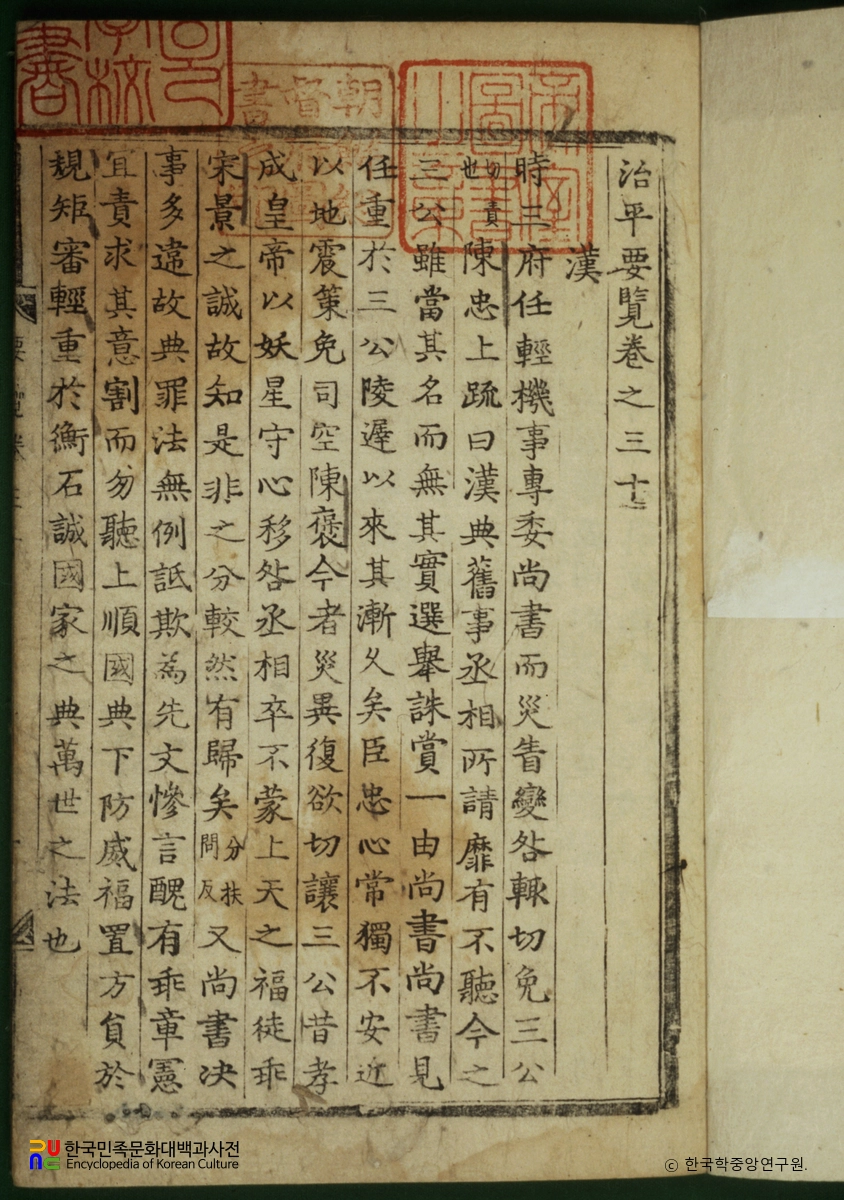 治平要覽卷之三十
漢
時三府任輕機事專委尚書而災眚變咎輒切免三公
切責也陳忠上疏曰漢典舊事丞相所請靡有不聽今之
三公雖當其名而無其實選舉誅賞一由尚書尚書見
任重於三公陵遲以來其漸久矣臣忠心常獨不安近
以地震策免司空陳褒今者災異復欲切讓三公昔孝
成皇帝以妖星守心移咎丞相卒不蒙上天之福徒乖
宋景之誠故知是非之分較然有歸矣分扶問反又尚書决
事多違故典罪法無例詆欺為先文慘言醜有乖章憲
宜責求其意割而勿聽上順國典下防威福置方負於
規矩審輕重於衡石誠國家之典萬世之法也
한국민족문화대백과사전
Encyclopedia of Korean Culture
ⓒ 한국학중앙연구원.